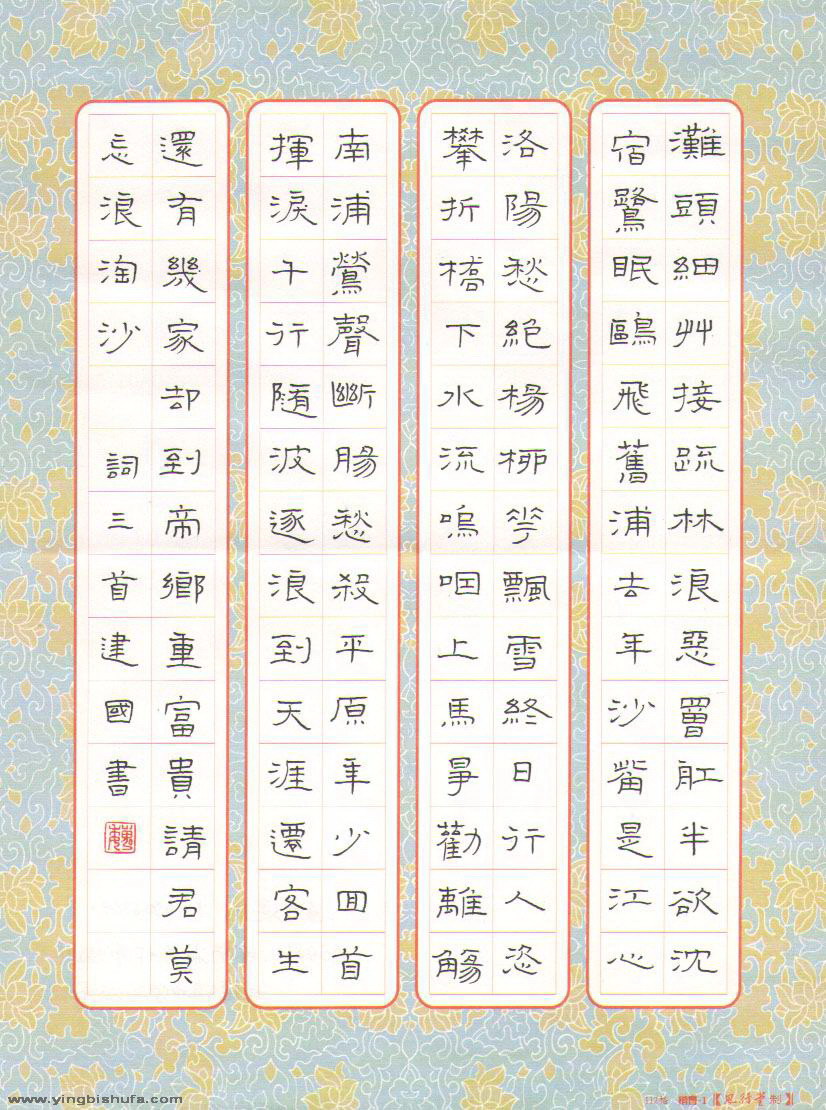 灘頭細艸接疏林浪惡罾舡半欲沈
宿鷺眠鷗飛舊浦去年沙觜是江心
洛陽愁絕楊柳花飄雪終日行人恣
攀折橋下水流嗚咽上馬爭勸離觴
南浦鶯聲斷腸愁殺平原年少囬首
揮淚千行隨波逐浪到天涯遷客生
還有幾家却到帝鄉重富貴請君莫
忘浪淘沙 詞三首建國書
www.yingbishufa.com